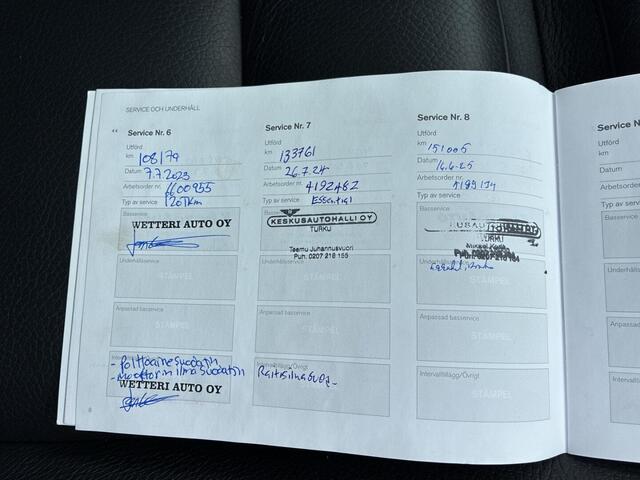 SERVICE OCH UNDERHÅLL
Service Nr. 6
Utförd
km 108179
Datum 7.7.2023
Arbetsorder nr. 1600955
Typ av service 120Tkm
Basservice
WETTERI AUTO OY
Underhållsservice
STÄMPEL
Anpassad basservice
STÄMPEL
- Polttoainesuodatin
- Moottorin ilmasuodatin
WETTERI AUTO OY
8
Service Nr. 7
Utförd
km 133761
Datum 26.7.24
Arbetsorder nr. 4192482
Typ av service Essential
Basservice
KESKUSAUTOHALLI OY
TURKU
Teemu Juhannusvuori
Puh. 0207 218 155
Underhållsservice
Anpassad basservice
STÄMPEL
Intervalltillägg/Övrigt
Raitisilmasuod.
Service Nr. 8
Utförd
km 151005
Datum 16.6.25
Arbetsorder nr.
Typ av service
Basservice
TURKU
Underhållsservice
Anpassad basservice
STÄMPEL
Intervalltillägg/Övrigt
STÄMPEL
Service N
Utförd
km
Datum
Arbetsorder
Typ av servi
Basservice
Underhållss
Anpassad b
Intervalltillä